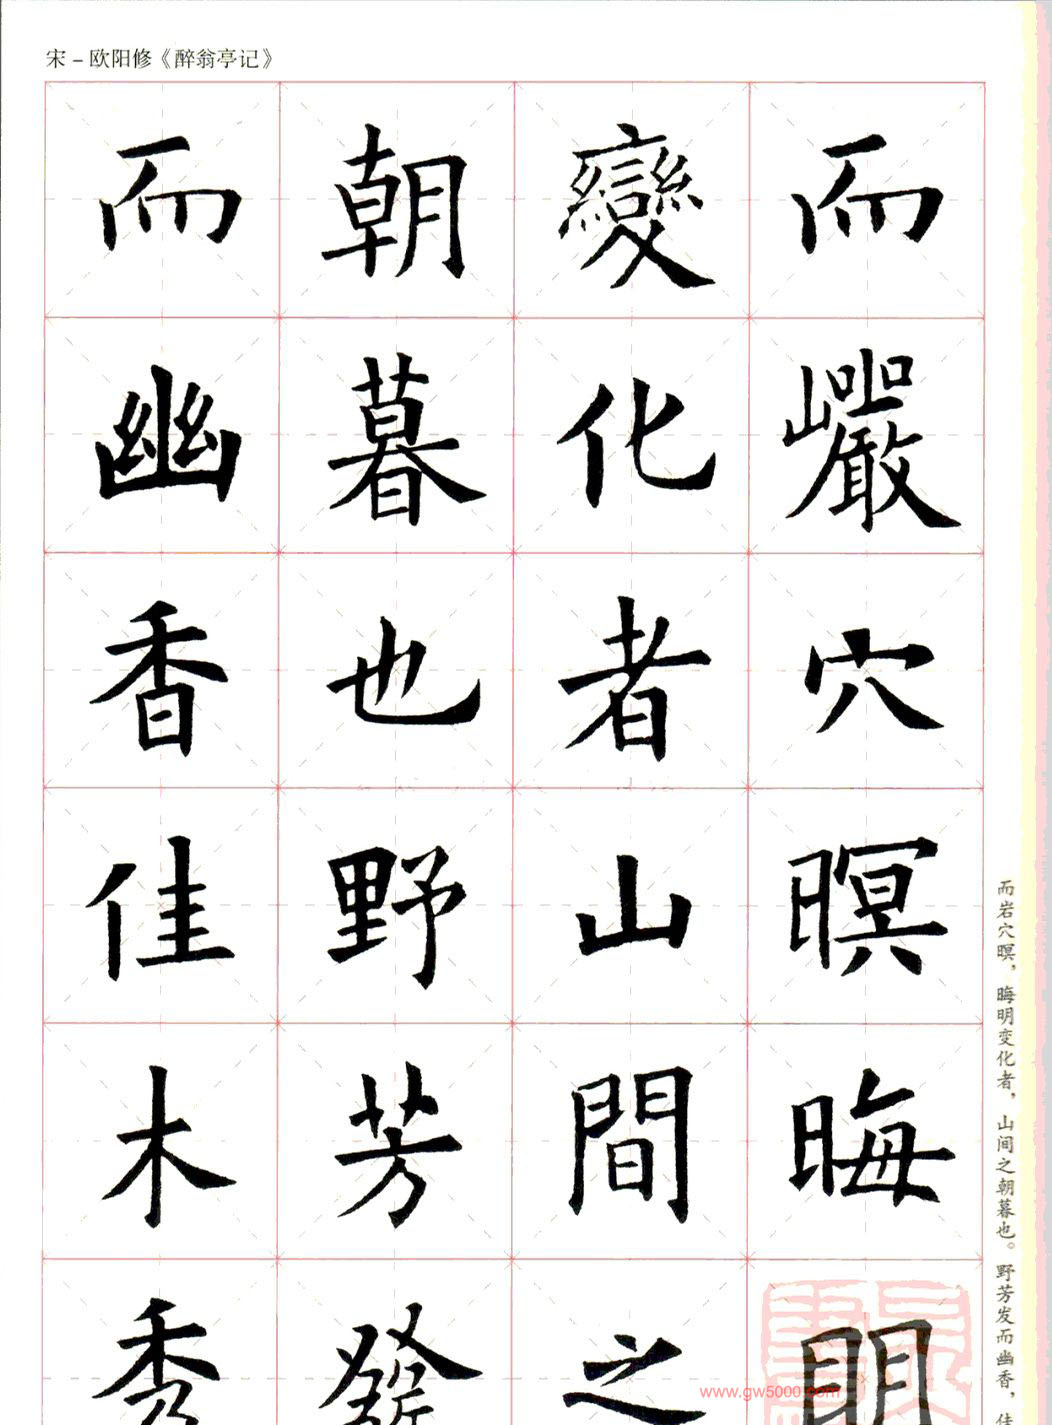 宋－欧阳修《醉翁亭记》
而巖穴暝晦明
變化者山間之
朝暮也野芳發
而幽香佳木秀
而岩穴暝，晦明变化者，山间之朝暮也。野芳发而幽香，佳
www.gw5000.com